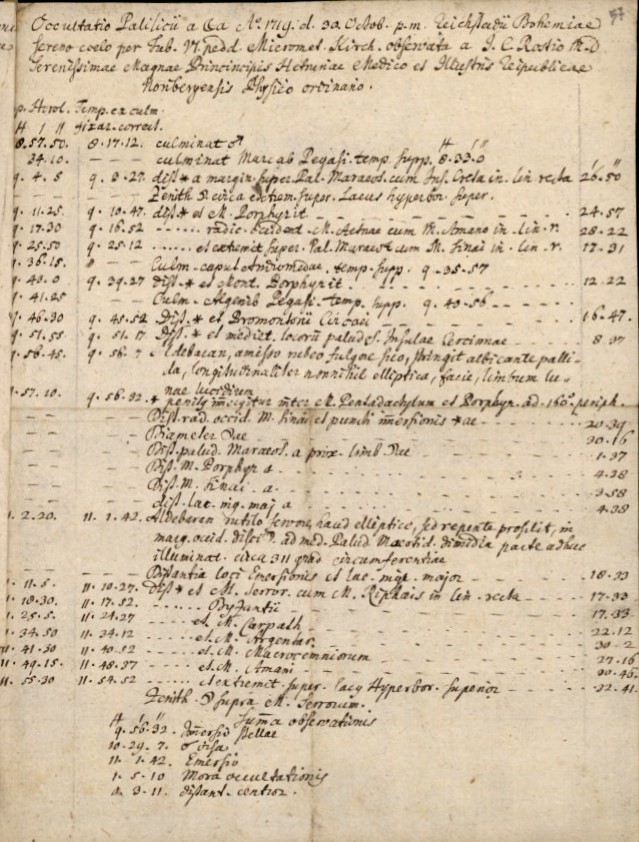 57
Occultatio Palilicii a ☾a Aº 1719. d. 30 Octob. p.m. Reichstadii Bohemiae
sereno coelo per Tub. VI pedd. Micromet. Kirch. observata a J. C. Rostio M.D
Serenissimae Magnae Principis Hetruriae Medico et Illustris Reipublicae
Noribergensis Physico ordinario.
p. Horol. Temp. ex culm.
H ' '' fixar. correct.
8.57.50. 8.17.12. culminat ♂
34.10. — — culminat Marcab Pegasi. temp. supp. 8.33.0
9. 4. 5 9. 3.27. dist * a margin. super. Pal. Maraeot. cum Ins. Creta in lin recta 26.50
Zenith ☽ circa extrem. super. Lacus hyperbor. super.
9. 11.25. 9. 10.47. dist * et M. Porphyrit 24.57
9. 17.30 9. 16.52 radic. occident. M. Aetnae cum M. Amano in lin. r. 28.22
9. 25.50 9. 25.12 et extremit super. Pal. Maraeot cum M. Sinai in lin. r. 17.31
9. 36.15. Culm. caput Andromedae. temp. supp. 9.35.57
9. 40.0 9. 39.27 Dist. * et Mont. Porphyrit 12.22
9. 41.25 Culm. Algenib Pegasi. temp. supp. 9.40.56
9. 46.30 9. 45.52 Dist. * et Promontorii Circaei 16.47.
9. 51.55 9. 51.17 Dist. * et mediet. locorum paludes. Insulae Cercinnae 8.37
9. 56.45. 9. 56.7 Aldebaran, amisso rubeo fulgore suo, stringit albicante palli-
da, longitudinaliter nonnihil elliptica, facie, limbum lu-
nae lucidum
9. 57.10. 9. 56.32. * penitus immergitur inter M. Pentadactylum et Porphyr. ad 160° periph.
Dist. rad. occid. M. Sinai et puncti immersionis *ae 20.39
Diameter ☽ae 30.16
Dist. palud. Maraeot. a prox. limb. ☽ae 1.37
Dist. M. Porphyr a 4.28
Dist. M. Sinai. a 3.58
dist. lac. nig. maj a 4.38
1. 2.20. 11. 1.42. Aldebaran rutilo fervore, haud elliptice, sed repente prosilit, in
marg. occid. disci ☽. ad med. Palud Maeotid. dimidia parte adhuc
illuminat. circa 311 grad circumferentiae
Distantia loci Emersionis et lac. nigr. major 18.33
1. 11.5. 11. 10.27. Dist * et M. Serror. cum M. Riphaeis in lin. recta 17.33
1. 18.30. 11. 17.52. Byzantii 17.33
1. 25.5. 11. 24.27 et M. Carpath 22.12
1. 34.50 11. 34.12 et M. Argentar. 30.2
11. 41.30 11. 40.52 et M. Macrocemniorum 27.16
11. 49.15. 11. 48.37 et M. Amani 30.45
11. 55.30 11. 54.52 et extremit. super. lacy Hyperbor. superior 32.41.
Zenith. ☽ supra M. Serrorum.
H ' '' Summa observationis
9. 56.32. Immersio stellae
10.29. 7. ☌ visa
11. 1.42. Emersio
1. 5. 10 Mora occultationis
0. 3. 11. distant. centror.